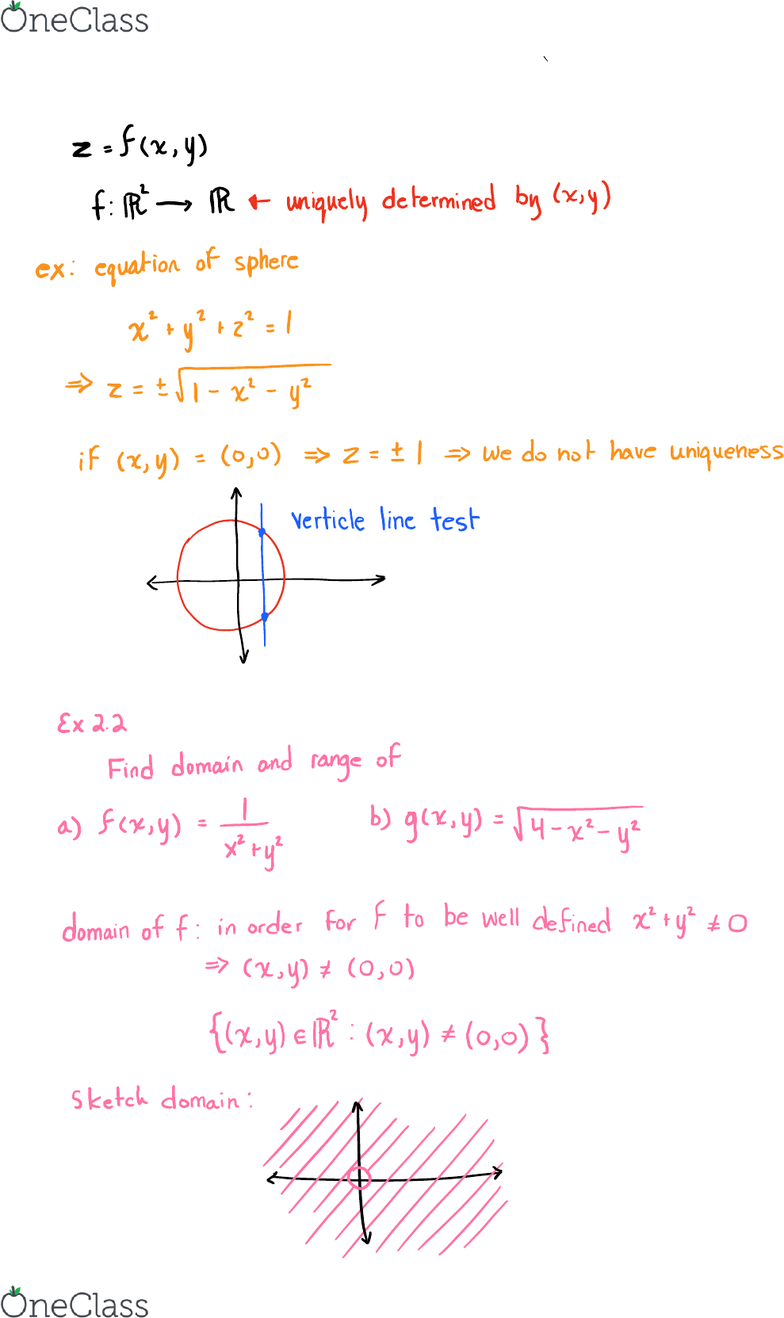 OneClass
z = f(x,y)
f: ℝ² → ℝ ← uniquely determined by (x,y)
ex: equation of sphere
x² + y² + z² = 1
⇒ z = ±√(1 - x² - y²)
if (x,y) = (0,0) ⇒ z = ± 1 ⇒ we do not have uniqueness
verticle line test
Ex 2.2
Find domain and range of
a) f(x,y) = 1/(x²+y²) b) g(x,y) = √(4-x²-y²)
domain of f: in order for f to be well defined x²+y² ≠ 0
⇒ (x,y) ≠ (0,0)
{(x,y) ∈ ℝ² : (x,y) ≠ (0,0)}
sketch domain:
OneClass